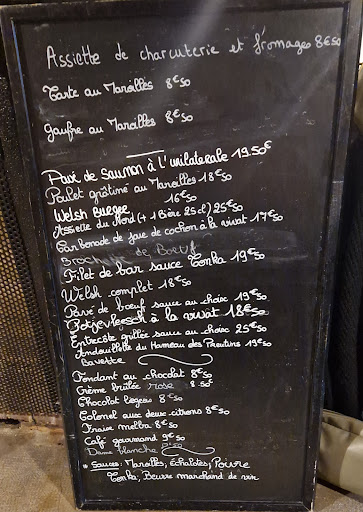 Assiette de charcuterie et fromages 8€50
Tarte au Maroilles 8€50
Gaufre au Maroilles 8€50
Pavé de Saumon à l'unilaterale 19.50€
Poulet gratiné au Maroilles 18€50
Welsh Burger 16€50
Assiette du Nord (+ 1 Bière 25cl) 25€50
Carbonade de joue de cochon à la vivat 17€50
Brochette de Boeuf
Filet de bar sauce Tonka 19€50
Welsh complet 18€50
Pavé de bœuf sauce au choix 19€50
Potjevleesch à la vivat 18€50
Entrecôte grillée sauce au choix 25€50
Andouillette du Hameau des Pareutins 19€50
Bavette
Fondant au chocolat 8€50
Crème brûlée rose 8.50€
Chocolat liegeois 8€50
Colonel aux deux citrons 8€50
Fraise melba 8€50
Café gourmand 9€50
Dame blanche
* Sauces: Maroilles, Echalotes, Poivre
Tonka, Beurre marchand de vin